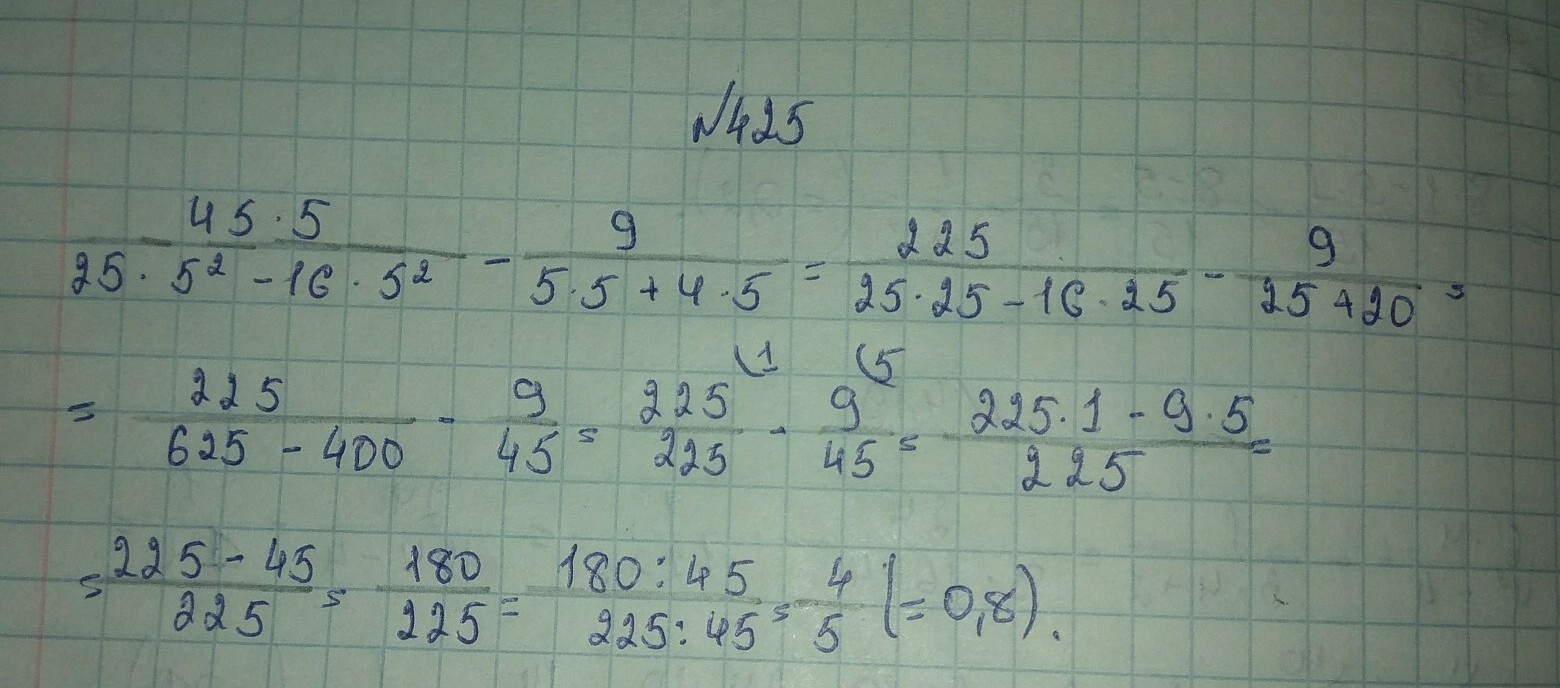 №425
45·5/(25·5²-16·5²) - 9/(5·5+4·5) = 225/(25·25-16·25) - 9/(25+20) =
= 225/(625-400) - 9/45 = 225/225 (1 - 9/45 (5 = (225·1-9·5)/225 =
= (225-45)/225 = 180/225 = (180:45)/(225:45) = 4/5 (= 0,8).